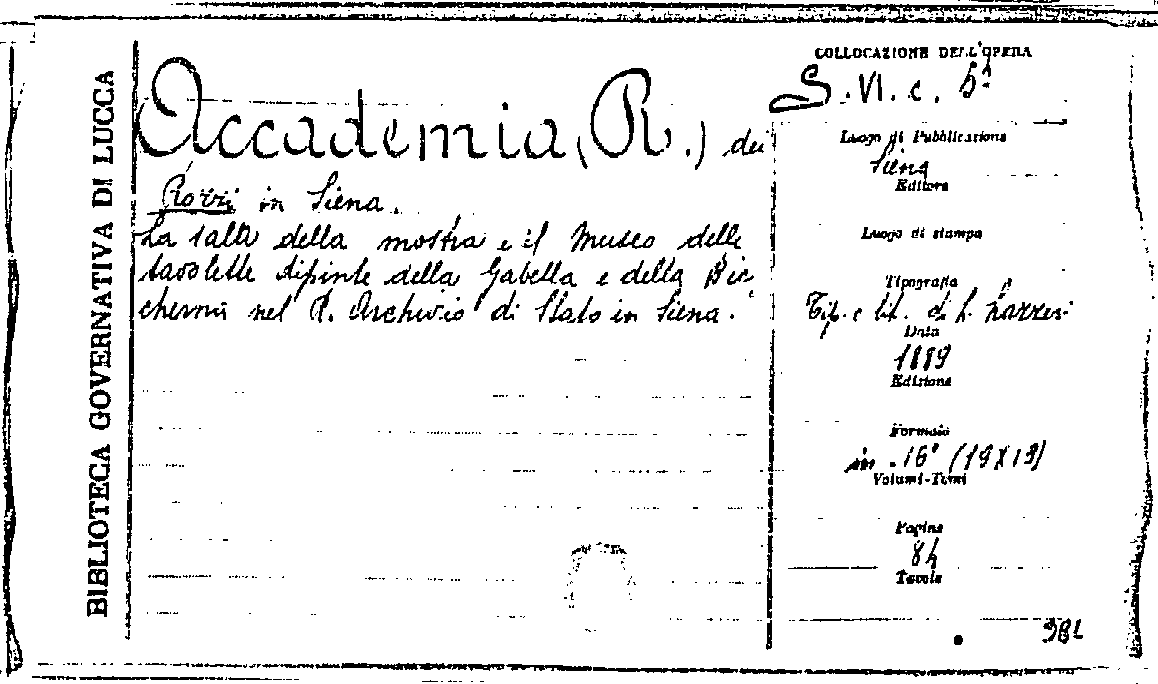 BIBLIOTECA GOVERNATIVA DI LUCCA
Accademia (R.) dei
Rozzi in Siena.
La sala della mostra e il Museo delle
tavolette dipinte della Gabella e della Bic-
cherna nel R. Archivio di Stato in Siena.
COLLOCAZIONE DELL'OPERA
S. VI. c. 5
Luogo di Pubblicazione
Siena
Editore
Luogo di stampa
Tipografia
Tip. e lit. di L. Lazzeri
Data
1889
Edizione
Formato
in 16° (19X13)
Volumi-Tomi
Pagine
84
Tavole